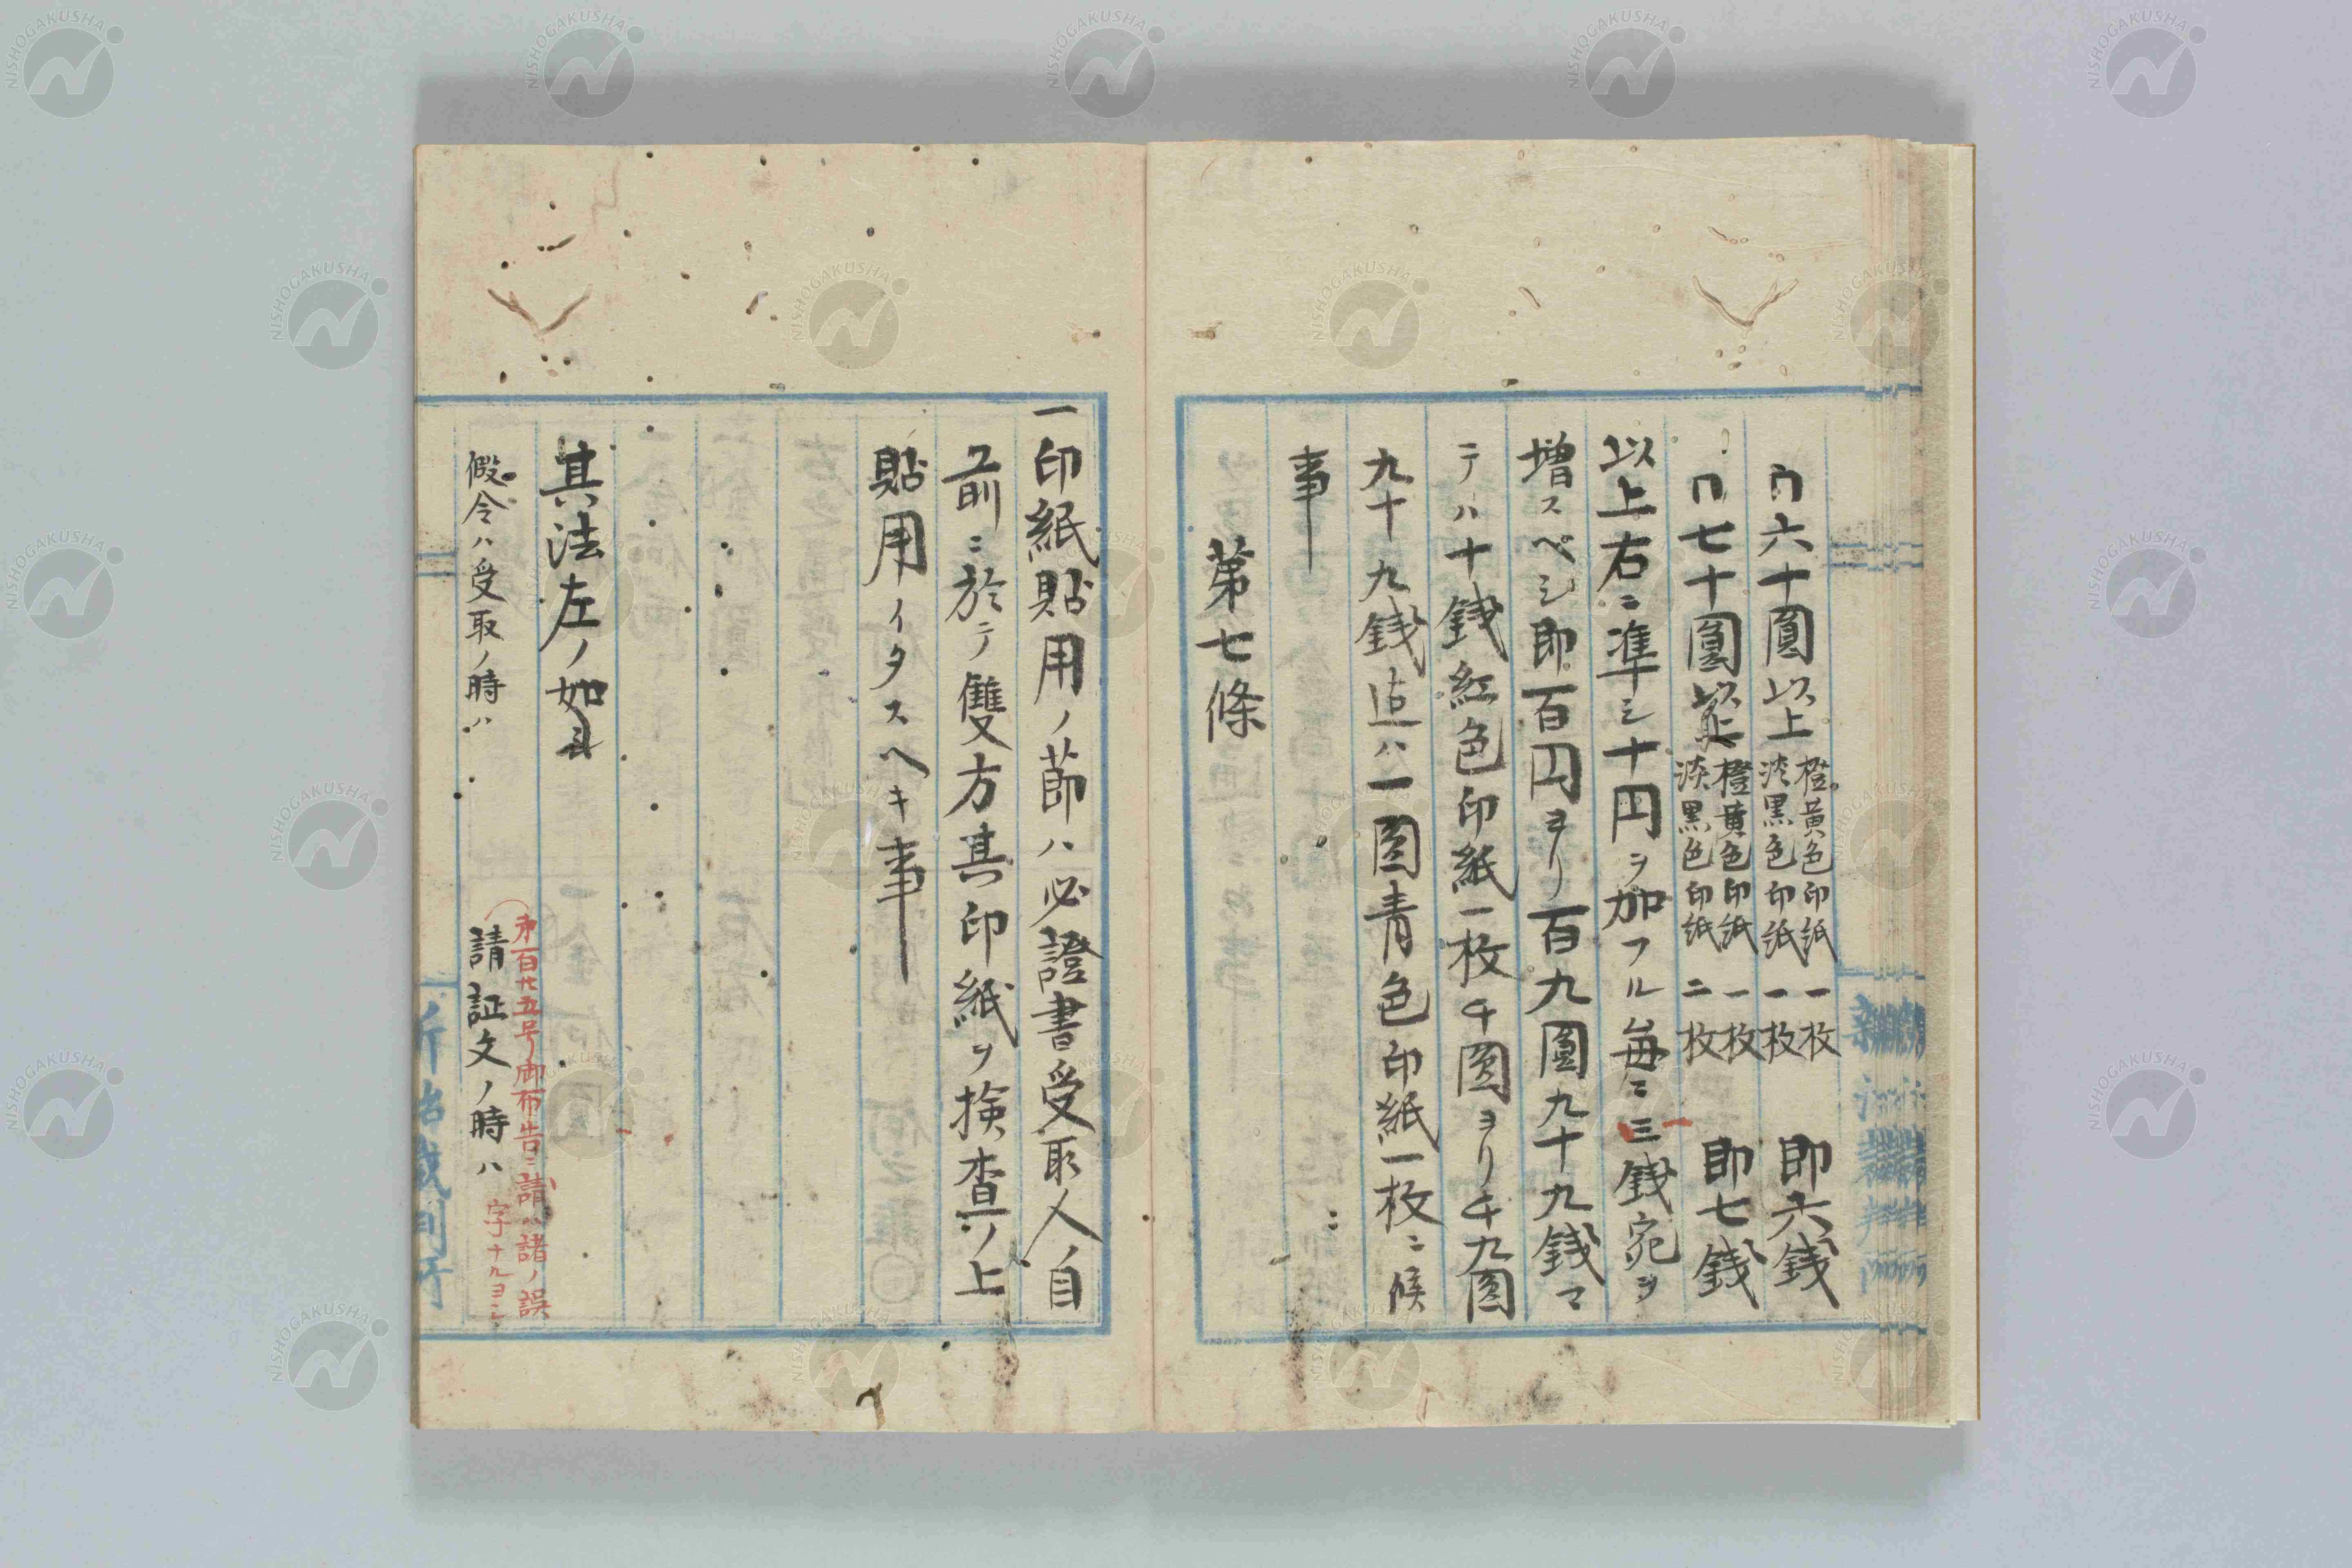 冂六十圓以上 橙黄色印紙一枚 淡黒色印紙一枚 即六銭
冂七十圓以上 橙黄色印紙一枚 淡黒色印紙二枚 即七銭
以上右ニ準シ十円ヲ加フル毎ニ三銭宛ヲ
一
増スベシ即百円ヨリ百九圓九十九銭マ
テハ十銭紅色印紙一枚千圓ヨリ千九圓
九十九銭迄ハ一圓青色印紙一枚ニ候
事
第七條
一印紙貼用ノ節ハ必證書受取人ノ自
前ニ於テ雙方其印紙ヲ検査ノ上
貼用イタスヘキ事
其法左ノ如シ
第百廿五号御布告ニ請ハ諸ノ誤
字ナルヨシ
假令ハ受取ノ時ハ 請証文ノ時ハ
新治裁判所
NISHOGAKUSHA